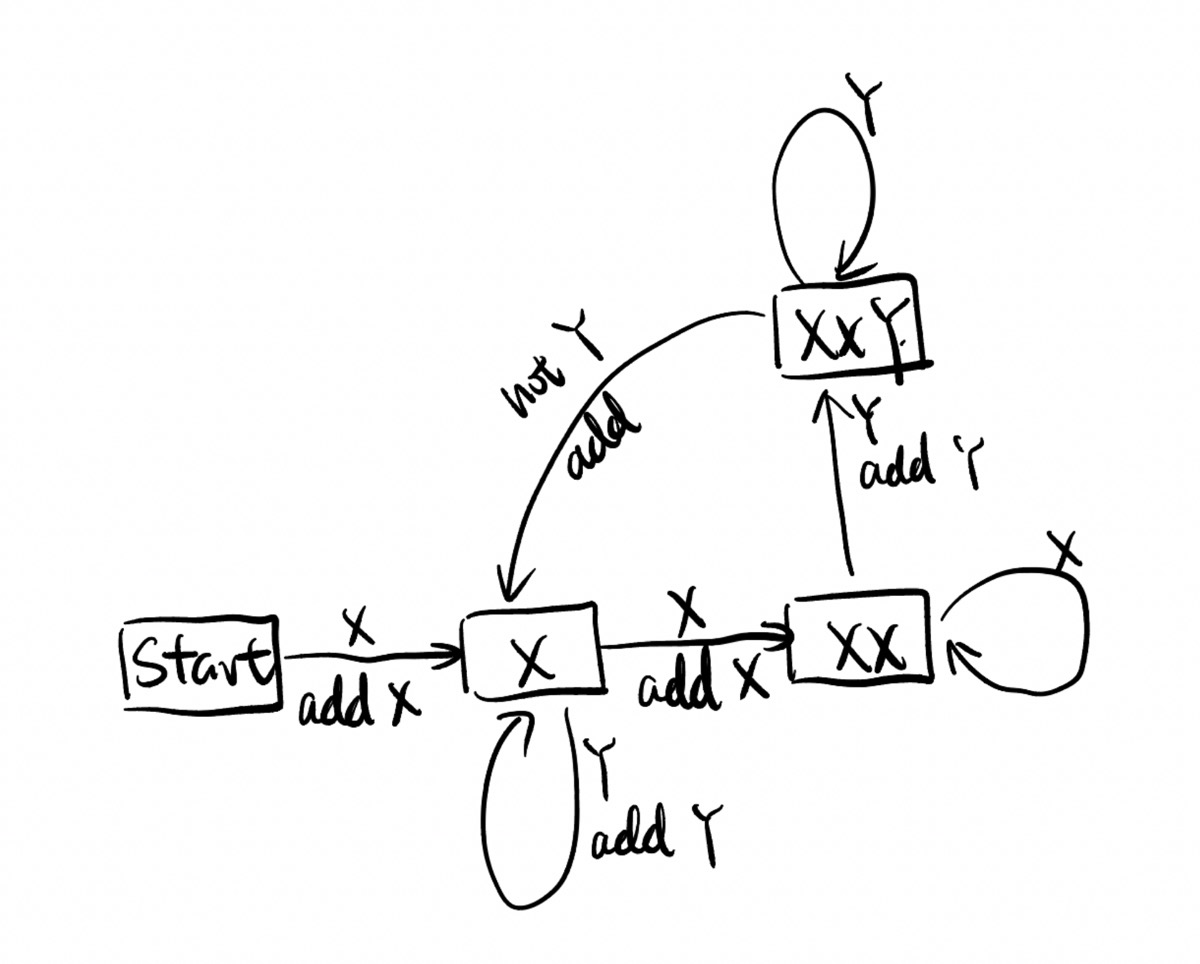 Y
XxY
not Y
add
Y
add Y
X
Start
X
add X
X
X
add X
XX
Y
add Y